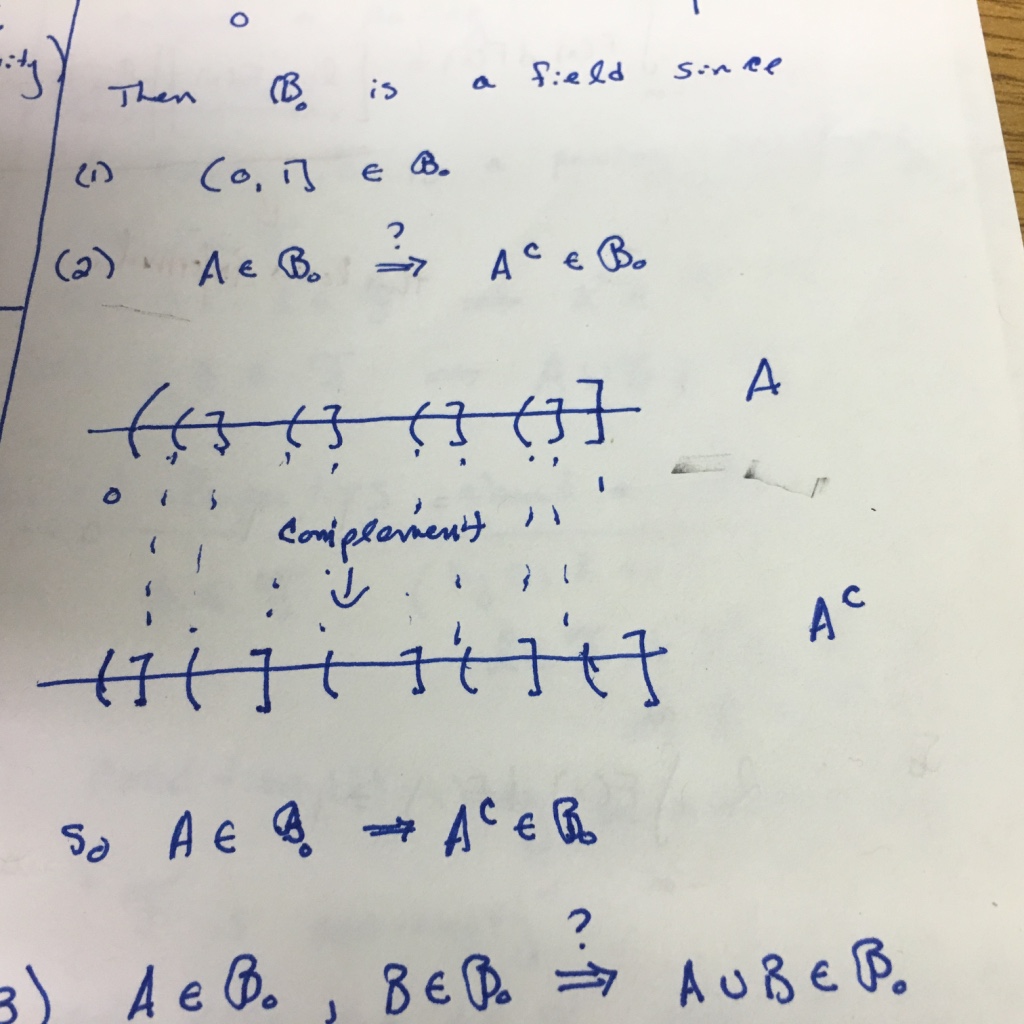 ity)
Then 𝔹₀ is a field since
(1) (0, 1] ∈ 𝔹₀
(2) A ∈ 𝔹₀ ?⇒ Aᶜ ∈ 𝔹₀
( ( ] ( ] ( ] ( ] ] A
0 1
complement
↓
( ] ( ] ( ] ( ] ( ] Aᶜ
So A ∈ 𝔹₀ ⇒ Aᶜ ∈ 𝔹₀
3) A ∈ 𝔹₀ , B ∈ 𝔹₀ ?⇒ A ∪ B ∈ 𝔹₀